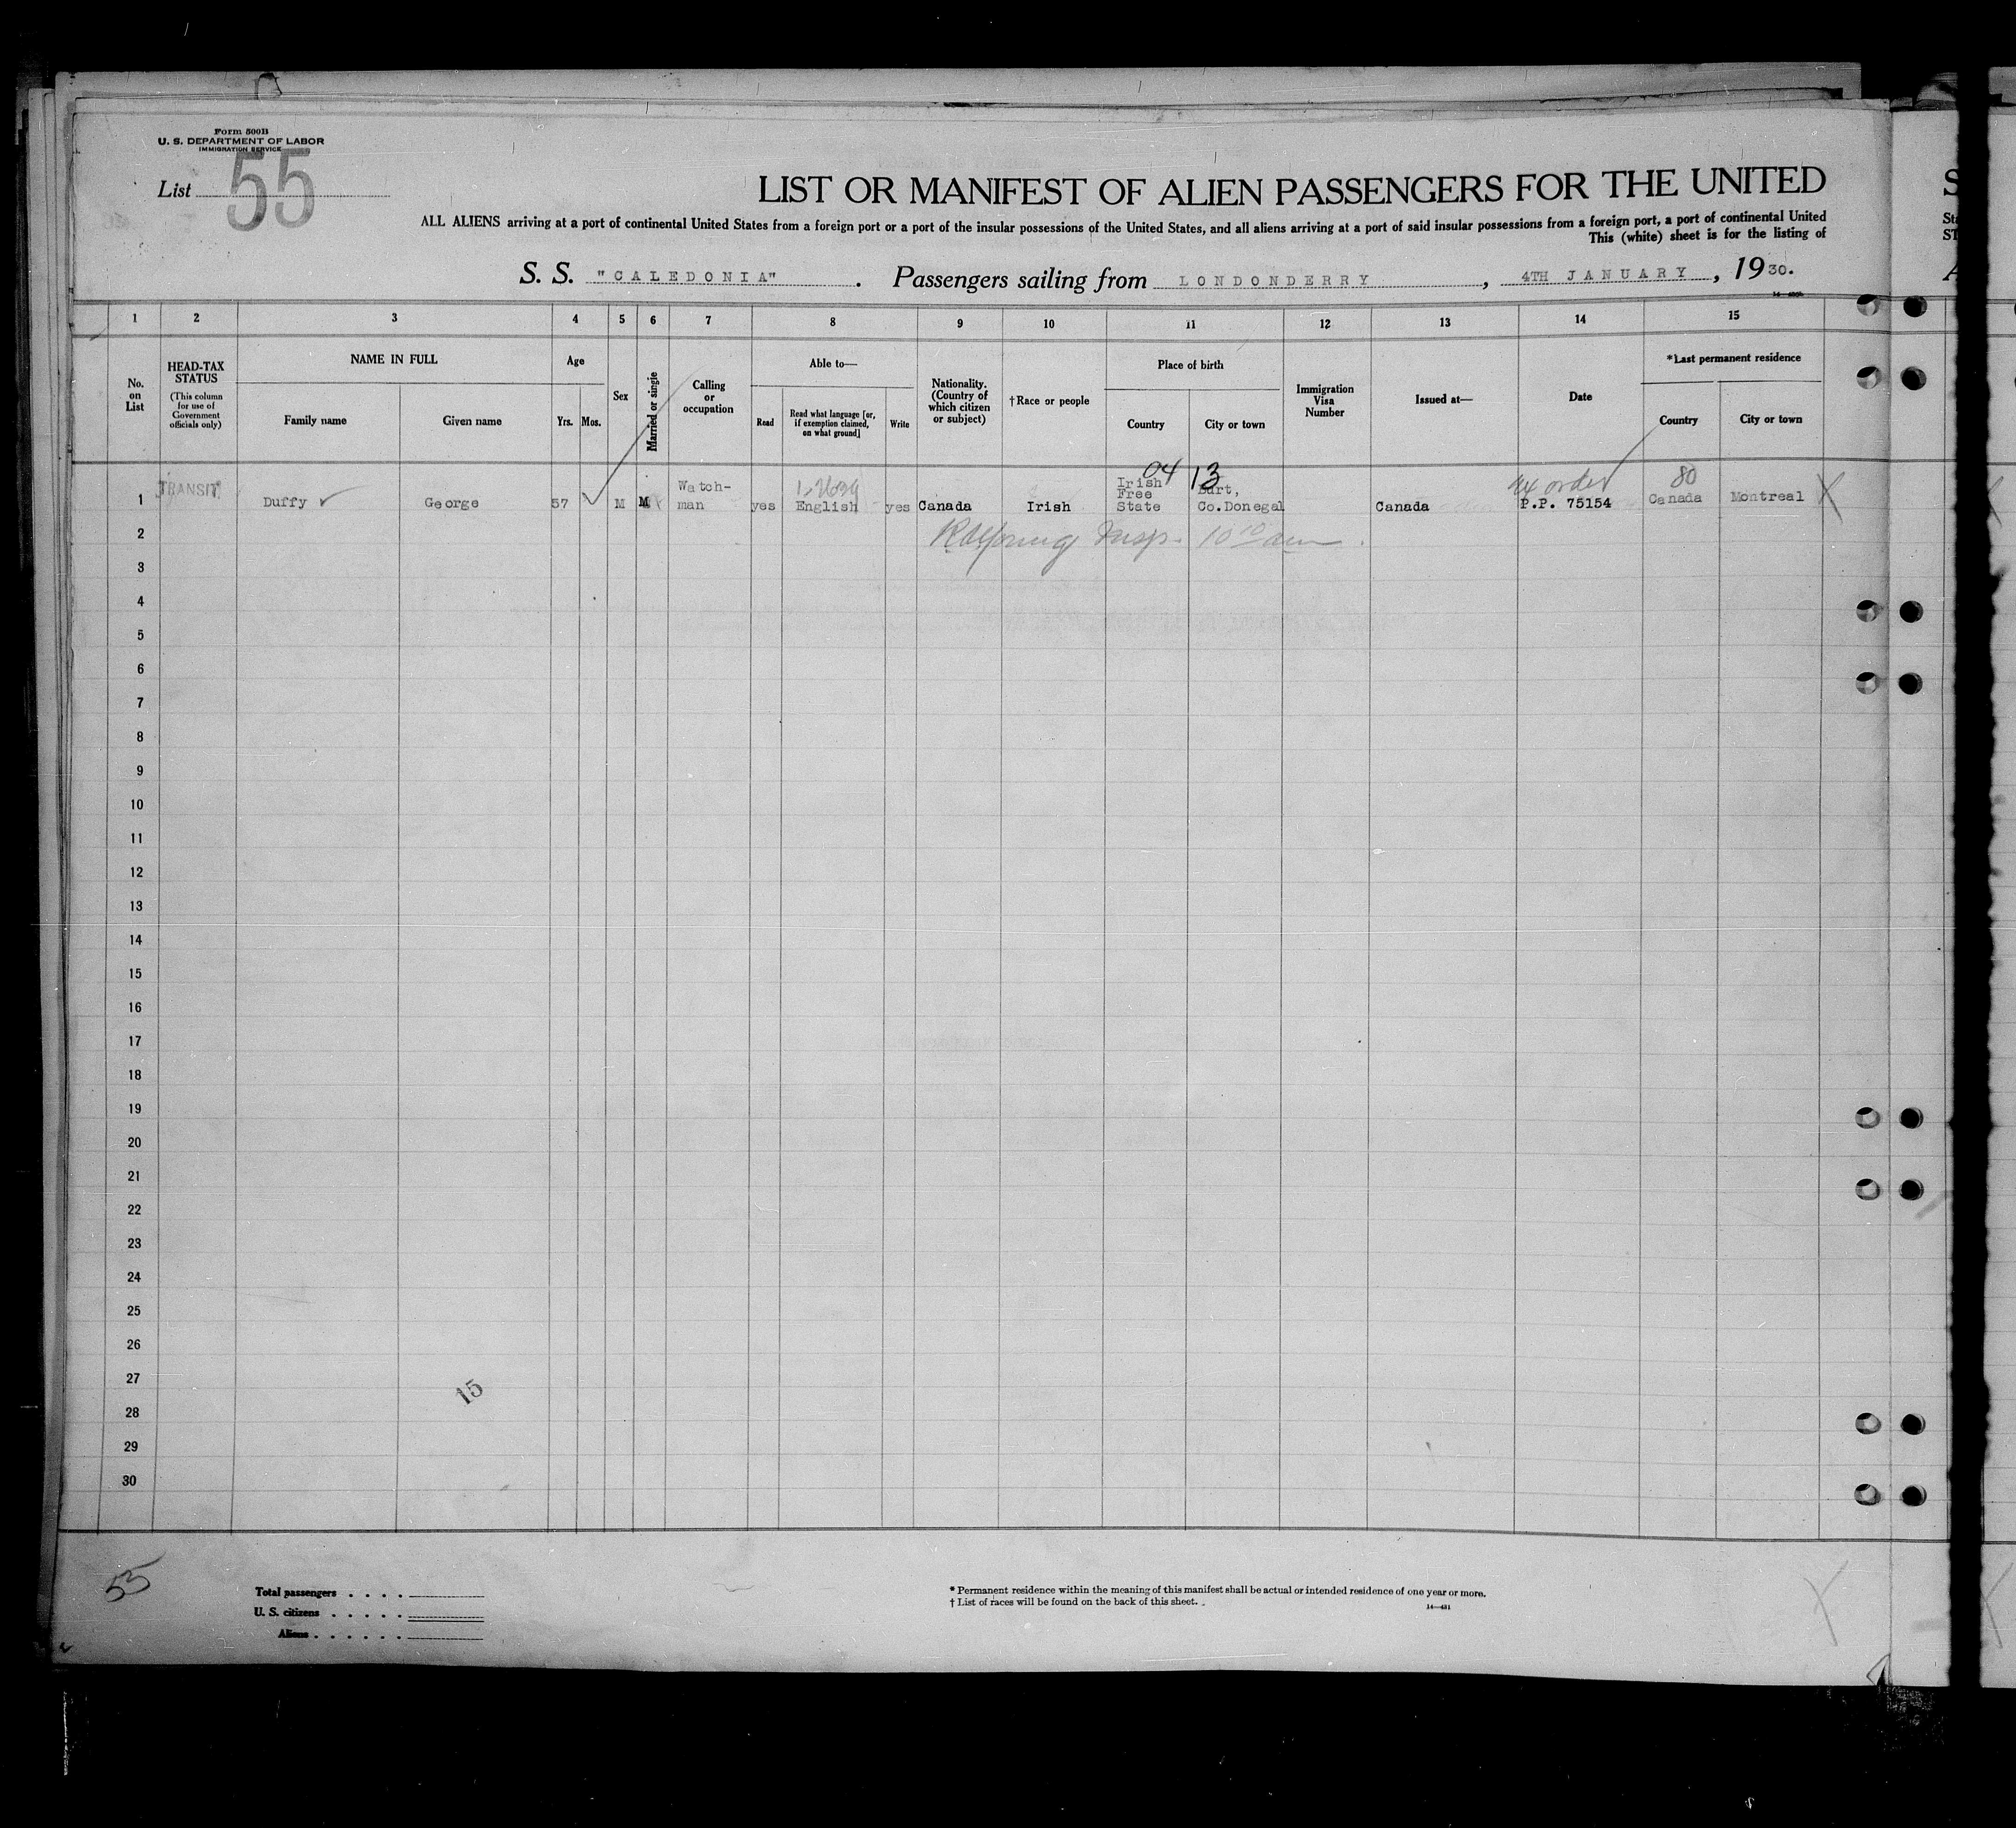 Form 500B
U. S. DEPARTMENT OF LABOR
IMMIGRATION SERVICE
List 55
LIST OR MANIFEST OF ALIEN PASSENGERS FOR THE UNITED
ALL ALIENS arriving at a port of continental United States from a foreign port or a port of the insular possessions of the United States, and all aliens arriving at a port of said insular possessions from a foreign port, a port of continental United
This (white) sheet is for the listing of
S. S. "CALEDONIA". Passengers sailing from LONDONDERRY, 4TH JANUARY, 1930.
1 2 3 4 5 6 7 8 9 10 11 12 13 14 15
No. on List
HEAD-TAX STATUS
(This column for use of Government officials only)
NAME IN FULL
Family name
Given name
Age
Yrs.
Mos.
Sex
Married or single
Calling or occupation
Able to—
Read
Read what language [or, if exemption claimed, on what ground]
Write
Nationality. (Country of which citizen or subject)
†Race or people
Place of birth
Country
City or town
Immigration Visa Number
Issued at—
Date
*Last permanent residence
Country
City or town
04 13
80
4x order
1 TRANSIT Duffy George 57 M M Watch-man yes English yes Canada Irish Irish Free State Burt, Co.Donegal Canada P.P. 75154 Canada Montreal X
2 Insp. 10 10 am
3
4
5
6
7
8
9
10
11
12
13
14
15
16
17
18
19
20
21
22
23
24
25
26
27
28
29
30
15
53
Total passengers
U. S. citizens
Aliens
* Permanent residence within the meaning of this manifest shall be actual or intended residence of one year or more.
† List of races will be found on the back of this sheet.
14—431